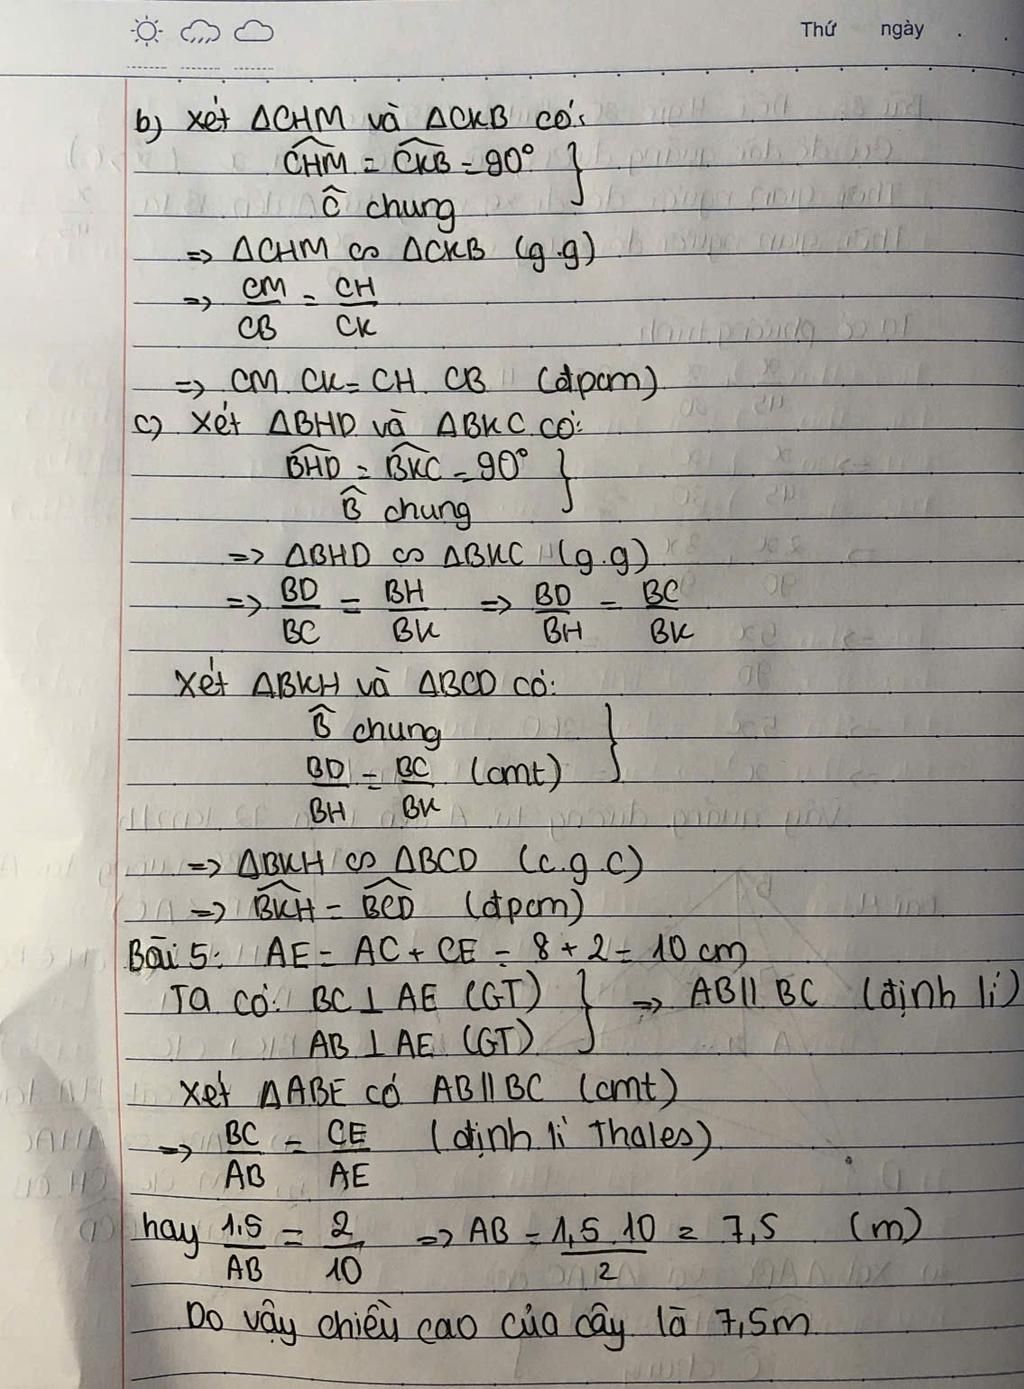 Thứ ngày .
b) Xét ΔCHM và ΔCKB có:
CHM = CKB = 90° }
Ĉ chung
=> ΔCHM ∽ ΔCKB (g.g)
=> CM/CB = CH/CK
=> CM. CK = CH. CB (đpcm)
c) Xét ΔBHD và ΔBKC có:
BHD = BKC = 90° }
B̂ chung
=> ΔBHD ∽ ΔBKC (g.g)
=> BD/BC = BH/BK => BD/BH = BC/BK
Xét ΔBKH và ΔBCD có:
B̂ chung }
BD/BH = BC/BK (cmt)
=> ΔBKH ∽ ΔBCD (c.g.c)
=> BKH = BCD (đpcm)
Bài 5: AE = AC + CE = 8 + 2 = 10 cm
Ta có: BC ⊥ AE (GT) } => AB // BC (định lí)
AB ⊥ AE (GT)
Xét ΔABE có AB // BC (cmt)
=> BC/AB = CE/AE (định lí Thales)
hay 1.5/AB = 2/10 => AB = 1,5.10/2 = 7,5 (m)
Do vậy chiều cao của cây là 7,5m